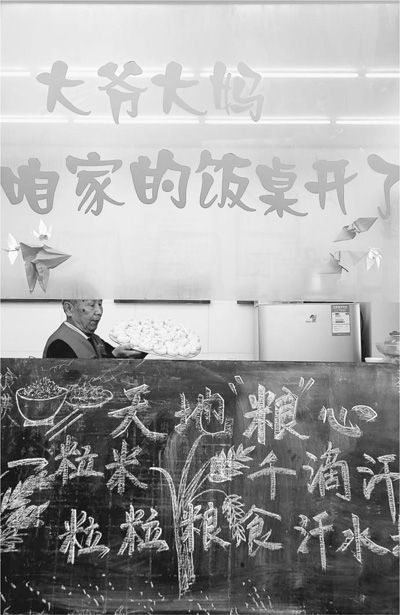 大爷大妈
咱家的饭桌开了
天地“粮”心
一粒米 千滴汗
粒粒粮食 汗水